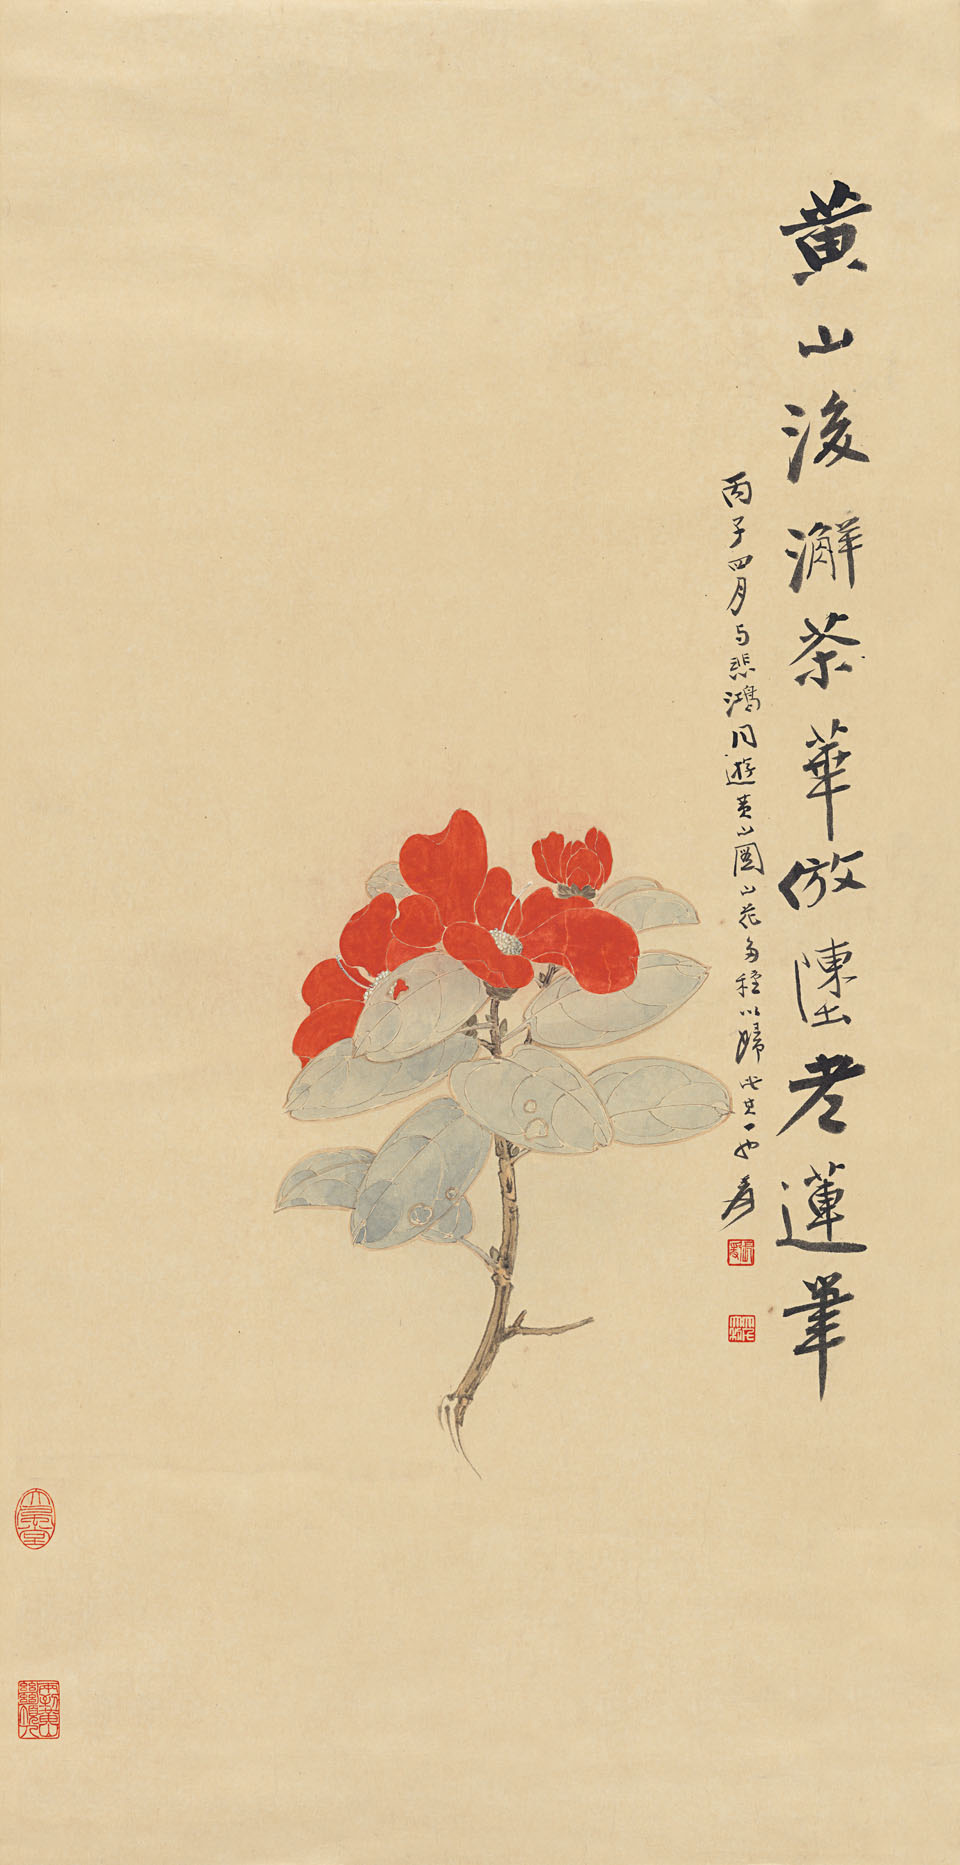 黃山後澥茶華倣陳老蓮筆
丙子四月与悲鴻同遊黃山圖山花多種以歸此其一也 爰
大風堂